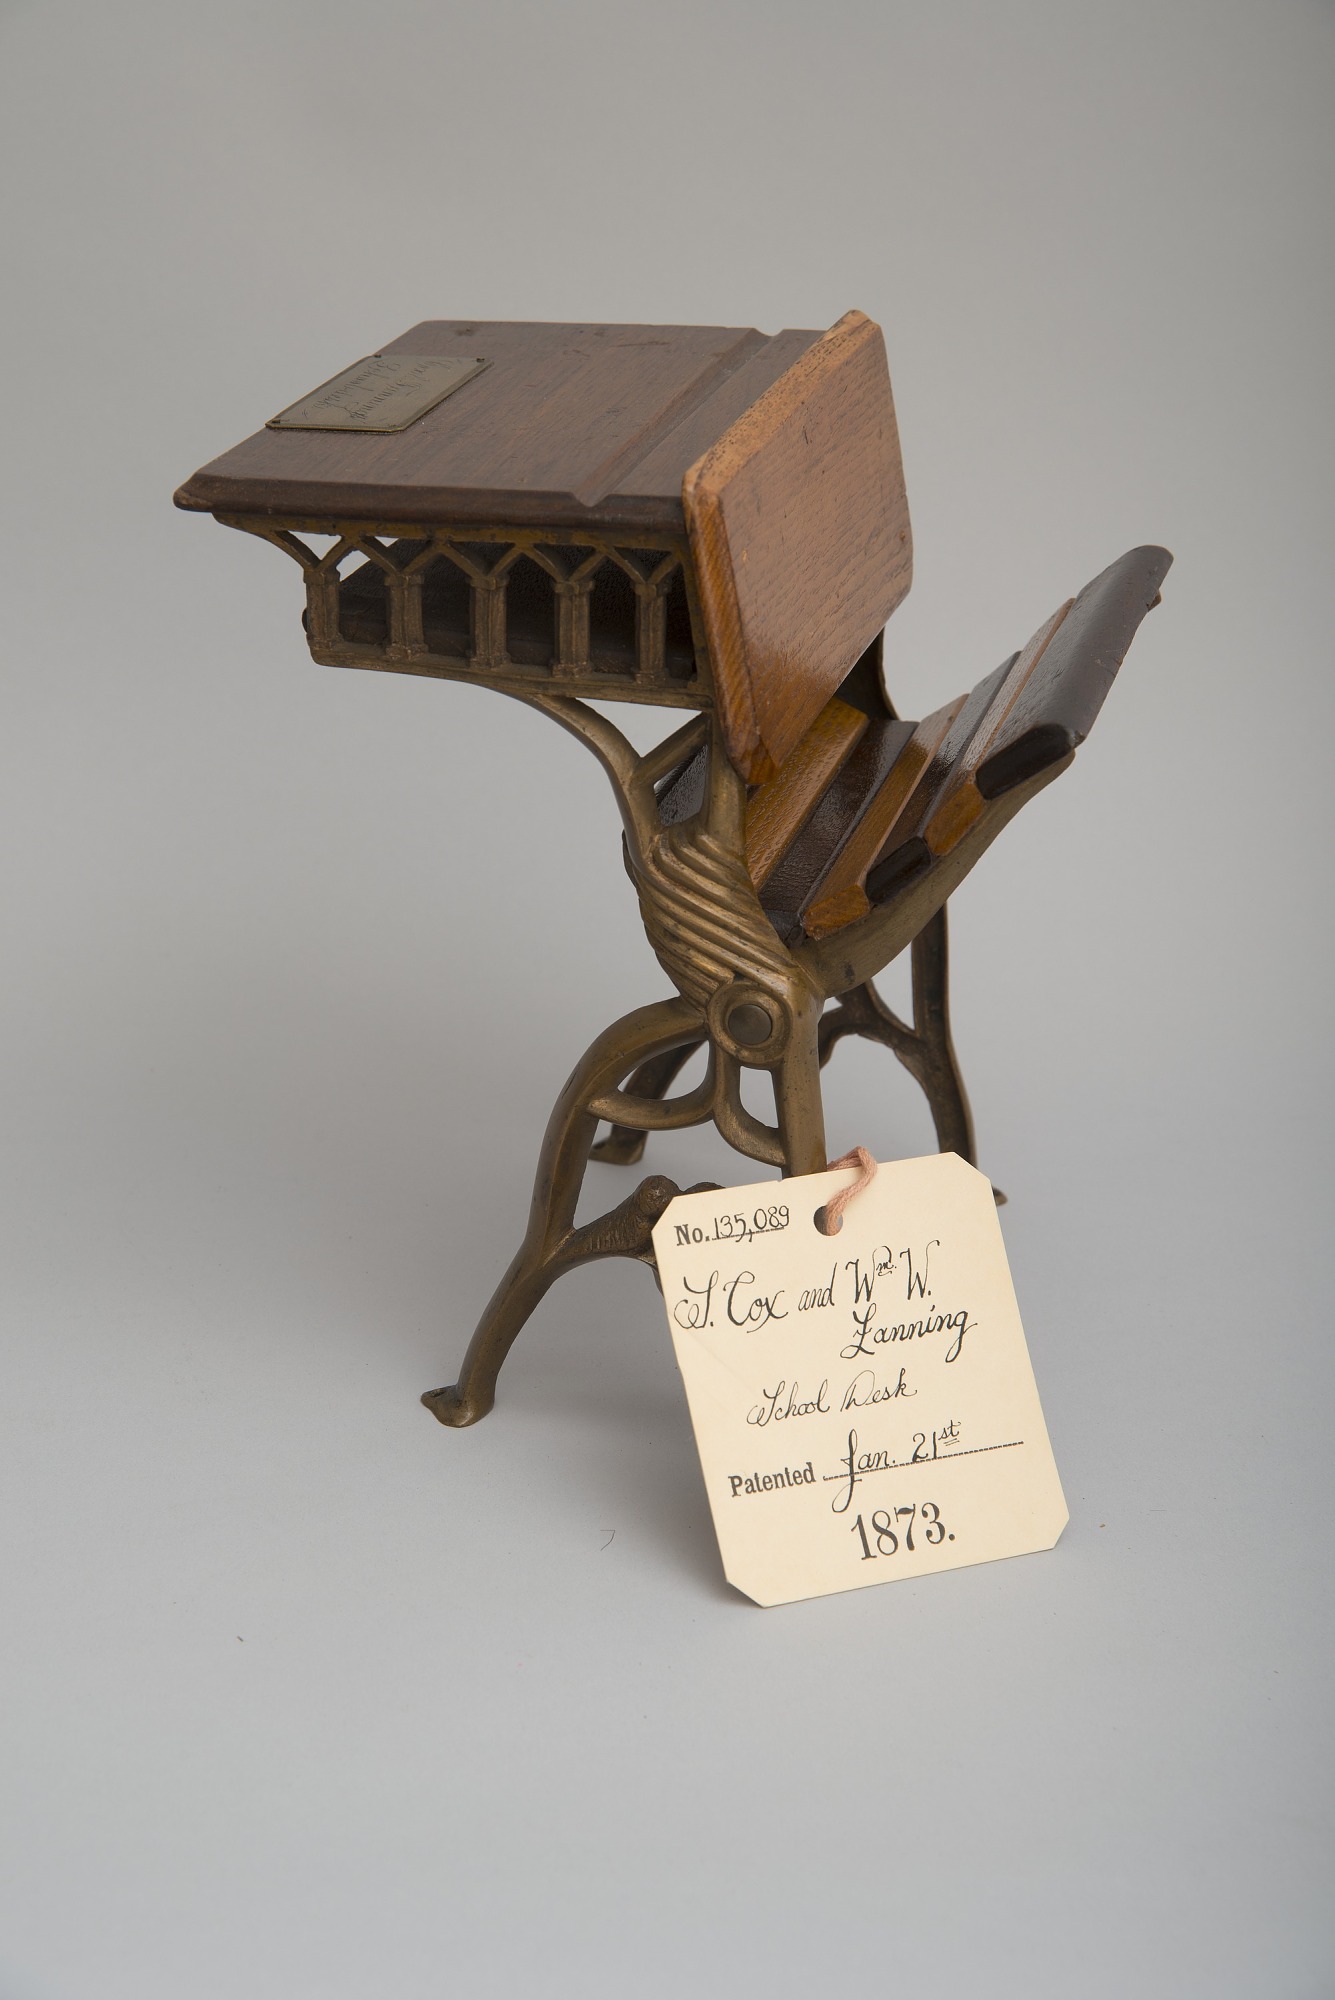 No. 135,089
S. Cox and Wm. W.
Fanning
School Desk
Patented Jan. 21st
1873.